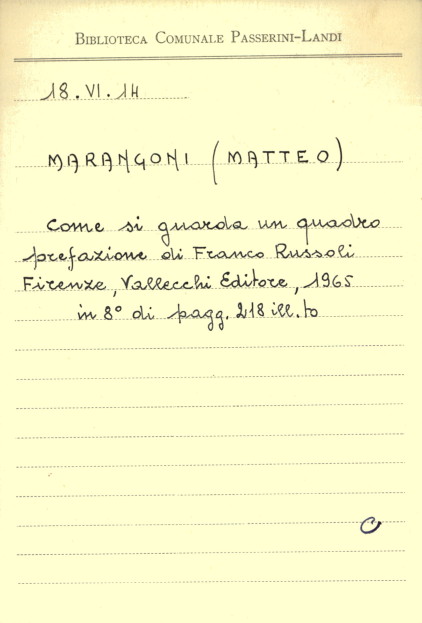 BIBLIOTECA COMUNALE PASSERINI-LANDI
18.VI.14
MARANGONI (MATTEO)
Come si guarda un quadro
prefazione di Franco Russoli
Firenze, Vallecchi Editore, 1965
in 8° di pagg. 218 ill.to
C